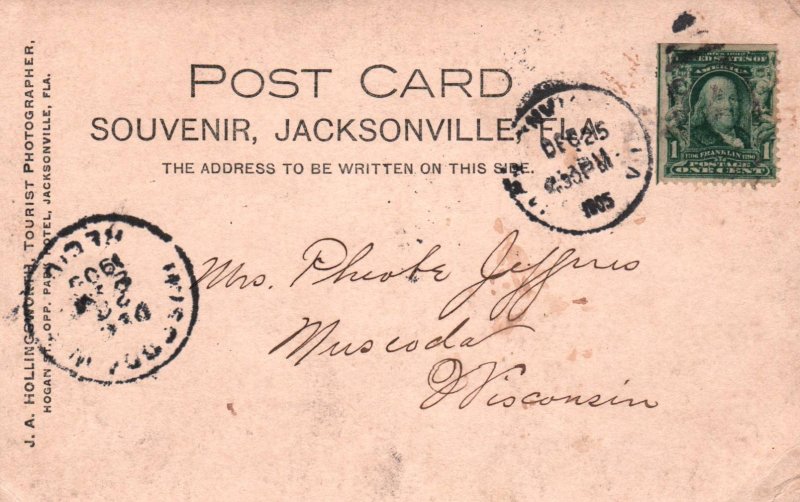 POST CARD
SOUVENIR, JACKSONVILLE, FLA.
THE ADDRESS TO BE WRITTEN ON THIS SIDE.
J. A. HOLLINGSWORTH, TOURIST PHOTOGRAPHER,
HOGAN ST., OPP. PARK HOTEL, JACKSONVILLE, FLA.
DEC 25
30 PM
1905
UNITED STATES OF
AMERICA
1706 FRANKLIN 1790
POSTAGE
1 ONE CENT 1
REC'D.
1905
MUSCODA
Mrs. Pheobe Jeffries
Muscoda
Wisconsin